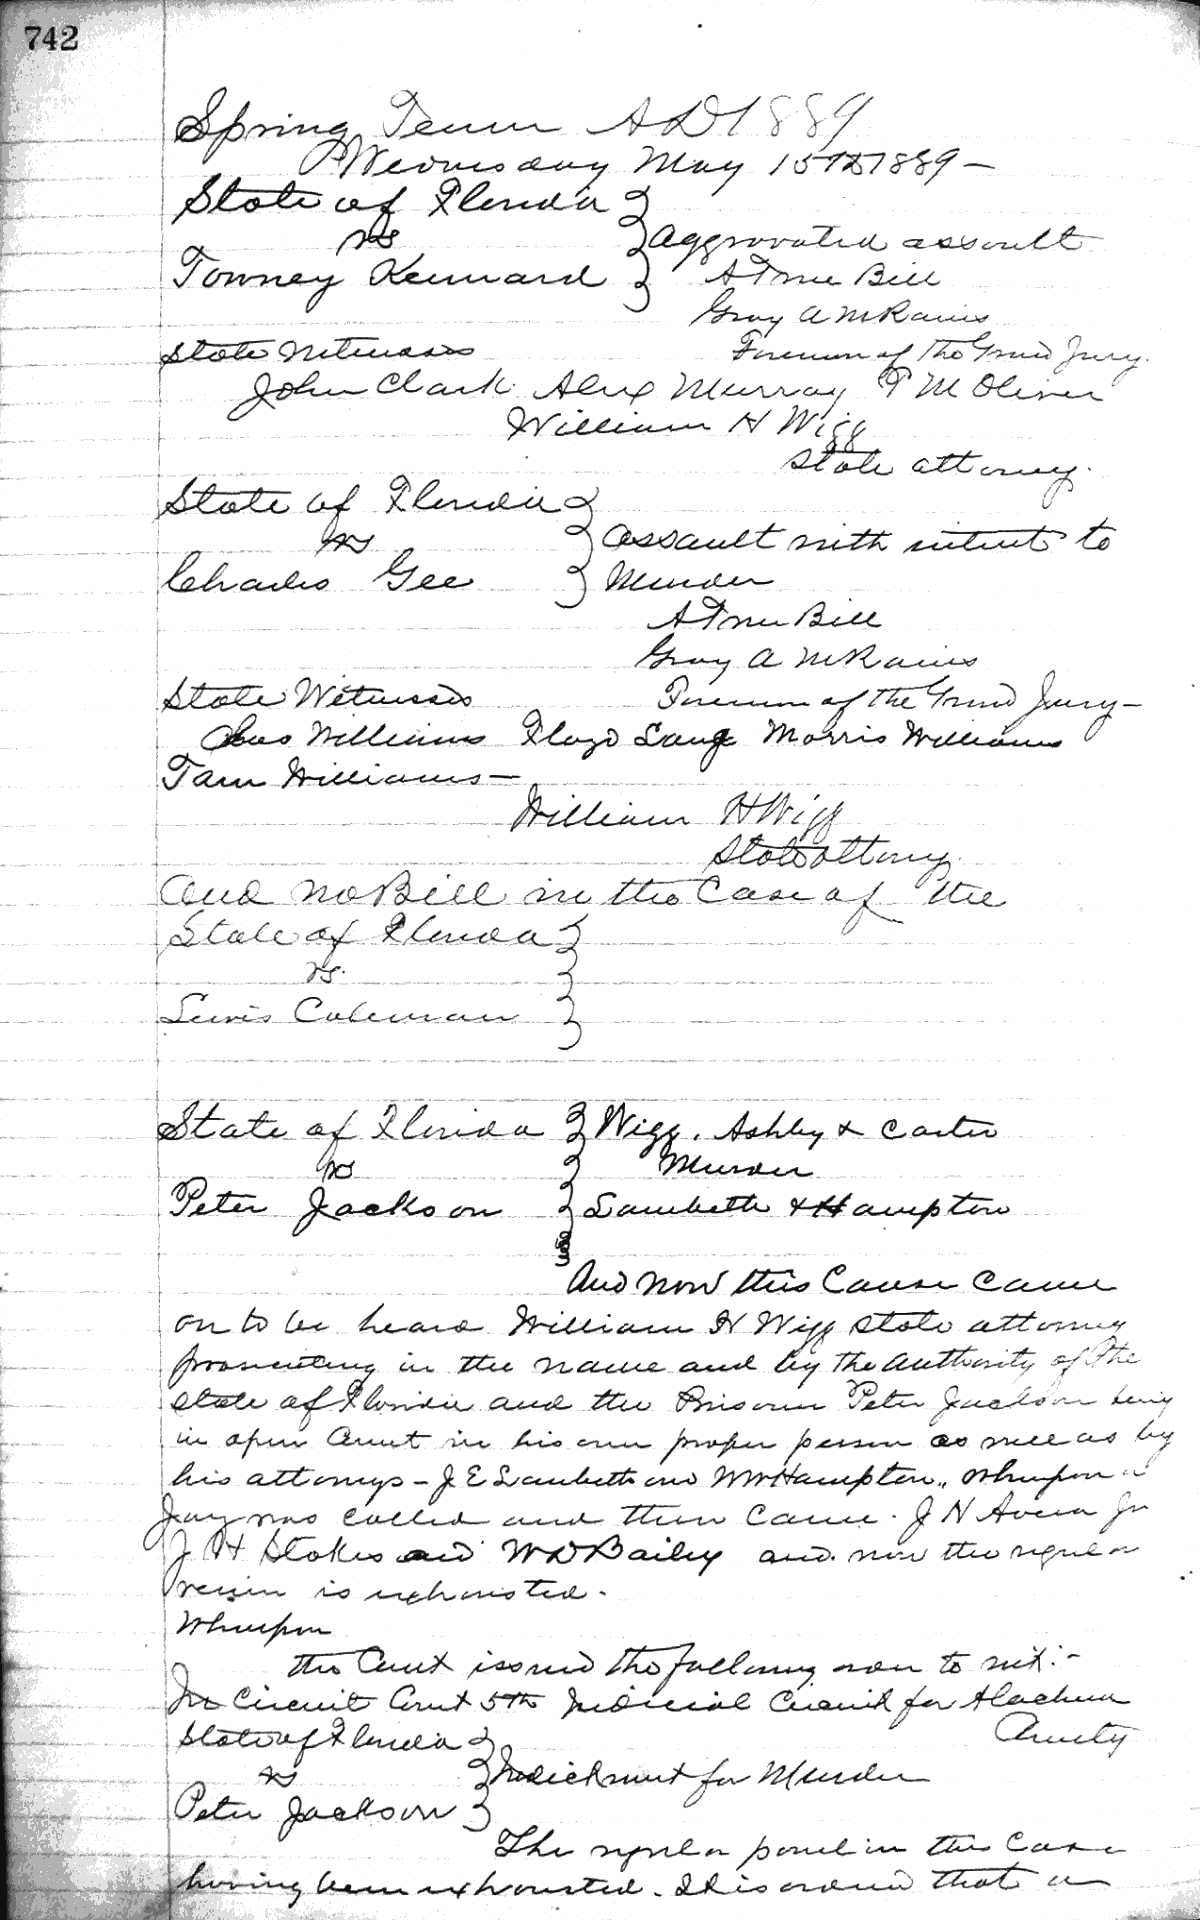 742
Spring Term A D 1889
Wednesday May 15th 1889 —
State of Florida
vs
Aggrovated assault
Towney Kennard
A True Bill
Gray A McRaines
State Witnesses
Foreman of the Grand Jury.
John Clark Alex Murray P M Oliver
William H Wigg
State attorney.
State of Florida
vs
Assault with intent to
Charles Gee
Murder
A True Bill
Gray A McRaines
State Witnesses
Foreman of the Grand Jury —
Chas Williams Floyd Lang Morris Williams
Tam Williams —
William H Wigg
State attorny.
And no Bill in the Case of the
State of Florida
vs.
Lewis Coleman
State of Florida
Wigg, Ashby & Carter
vs
Murder
Peter Jackson
Lambeth & Hampton
And now this Cause Came
on to be heard William H Wigg State attorney
prosecuting in the name and by the authority of the
State of Florida and the Prisoner Peter Jackson being
in open Court in his own proper person as well as by
his attorneys — J E Lambeth and W W Hampton., Whereupon a
Jury was called and then Came. J N Jr
J H Stokes and W D Bailey and now the regular
venire is exhausted.
Whereupon
the Court issued the following order to wit: -
In Circuit Court 5th Judicial Circuit for Alachua
County
State of Florida
vs
Indictment for Murder
Peter Jackson
The regular panel in this Case
having been exhausted. It is ordered that a